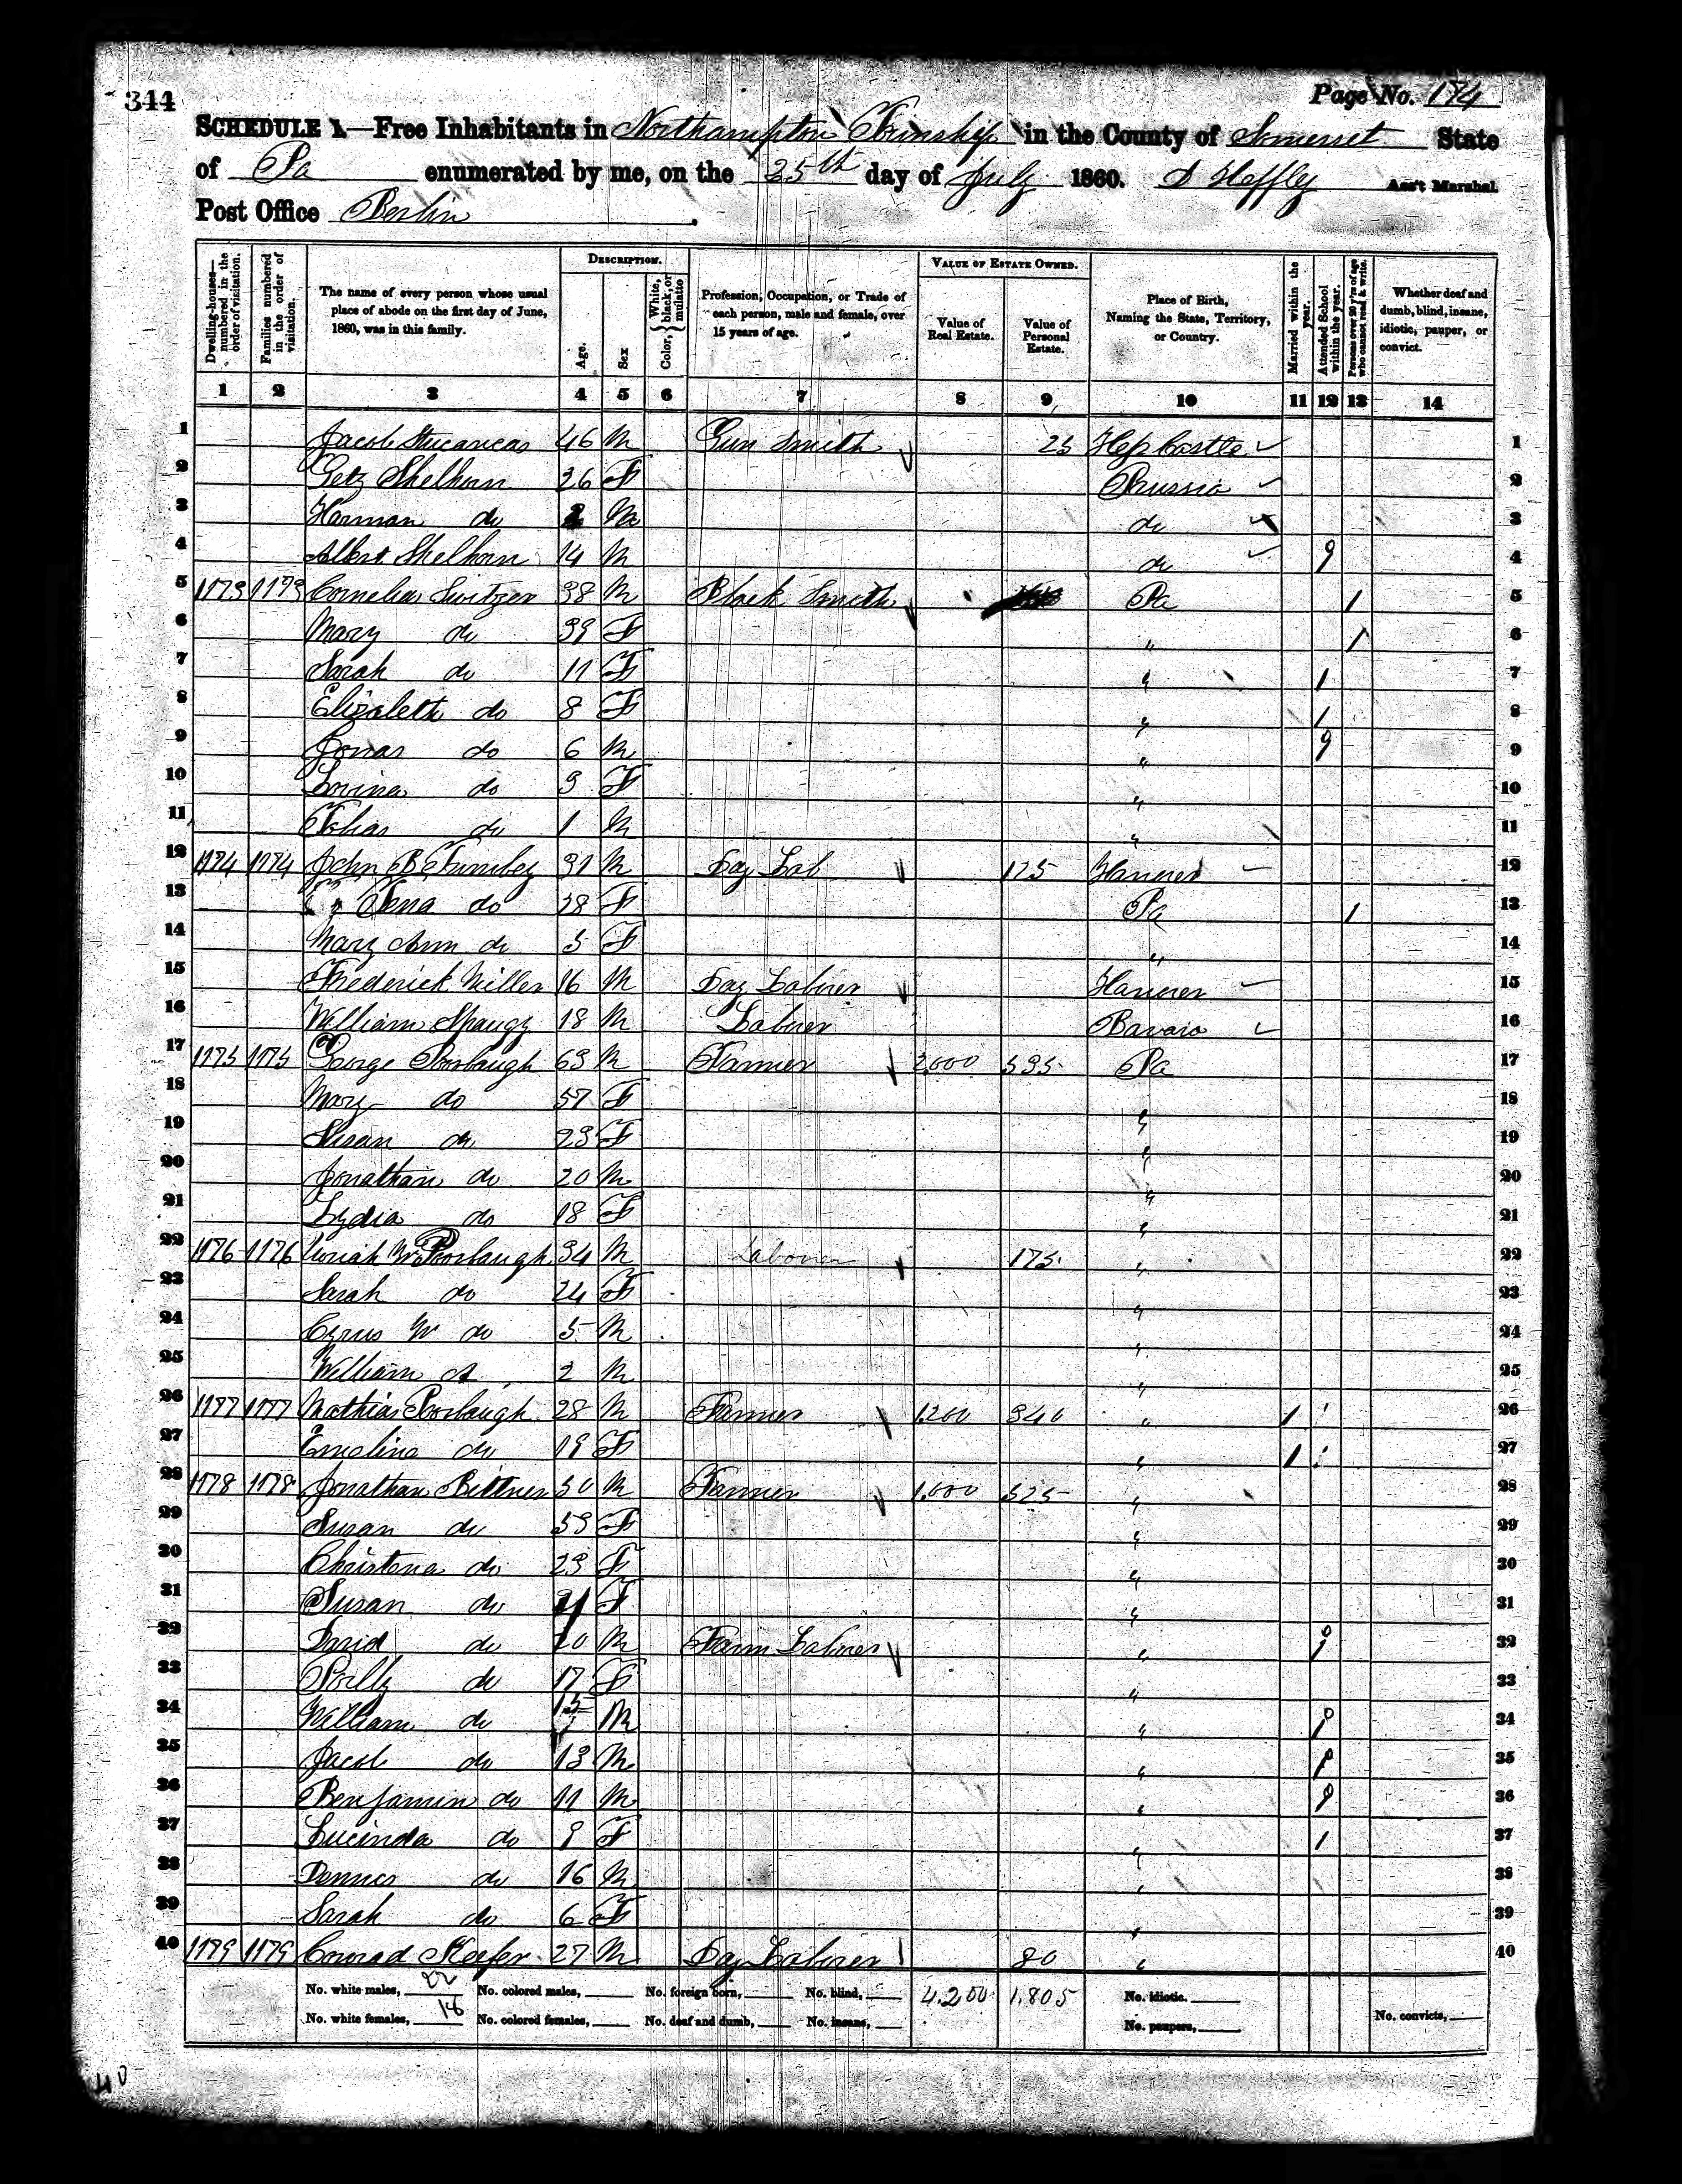 344
Page No. 174
SCHEDULE 1.—Free Inhabitants in Northampton Township in the County of Somerset State
of Pa enumerated by me, on the 25th day of July 1860. S Heffley Ass't Marshal.
Post Office Berlin.
Dwelling-houses—numbered in the order of visitation.
Families numbered in the order of visitation.
The name of every person whose usual place of abode on the first day of June, 1860, was in this family.
DESCRIPTION.
Age.
Sex
Color, { White, black, or mulatto
Profession, Occupation, or Trade of each person, male and female, over 15 years of age.
VALUE OF ESTATE OWNED.
Value of Real Estate.
Value of Personal Estate.
Place of Birth, Naming the State, Territory, or Country.
Married within the year.
Attended School within the year.
Persons over 20 y'rs of age who cannot read & write.
Whether deaf and dumb, blind, insane, idiotic, pauper, or convict.
1 2 3 4 5 6 7 8 9 10 11 12 13 14
1 Jacob 46 M Gun Smith 25 1
2 Getz Shelhorn 26 F Prussia 2
3 Herman do M do 3
4 Albert Shelhorn 14 M do 4
5 1173 1173 Cornelius Switzer 38 M Black Smith Pa 1 5
6 Mary do 39 F " 1 6
7 Sarah do 11 F " 1 7
8 Elizabeth do 8 F " 1 8
9 Jonas do 6 M " 1 9
10 Lovina do 3 F " 10
11 Tobias do 1 M " 11
12 1174 1174 John B 31 M Day Lab 175 Hanover 12
13 do 28 F Pa 1 13
14 Mary Ann do 5 F " 14
15 Frederick Miller 16 M Day Laborer Hanover 15
16 William Spaugy 18 M Laborer Bavaria 16
17 1175 1175 George Poorbaugh 63 M Farmer 2,000 535 Pa 17
18 Mary do 57 F " 18
19 Susan do 23 F " 19
20 Jonathan do 20 M " 20
21 Lydia do 18 F " 21
22 1176 1176 Uriah W Poorbaugh 34 M Laborer 175 " 22
23 Sarah do 24 F " 23
24 Cyrus W do 5 M " 24
25 William A " 2 M " 25
26 1177 1177 Mathias Poorbaugh 28 M Farmer 1,200 340 " 1 26
27 Emeline do 19 F " 1 27
28 1178 1178 Jonathan Bittner 50 M Farmer 1,000 525 " 28
29 Susan do 53 F " 29
30 Christena do 23 F " 30
31 Susan do 21 F " 31
32 David do 20 M Farm Laborer " 1 32
33 Polly do 17 F " 33
34 William do 15 M " 1 34
35 Jacob do 13 M " 1 35
36 Benjamin do 11 M " 1 36
37 Lucinda do 9 F " 1 37
38 Dennis do 16 M " 38
39 Sarah do 6 F " 39
40 1179 1179 Conrad Keefer 27 M Day Laborer 80 " 40
No. white males, 22 No. colored males, No. foreign born, No. blind, 4,200 1,805 No. idiotic.
No. white females, 18 No. colored females, No. deaf and dumb, No. insane, No. paupers, No. convicts,
40